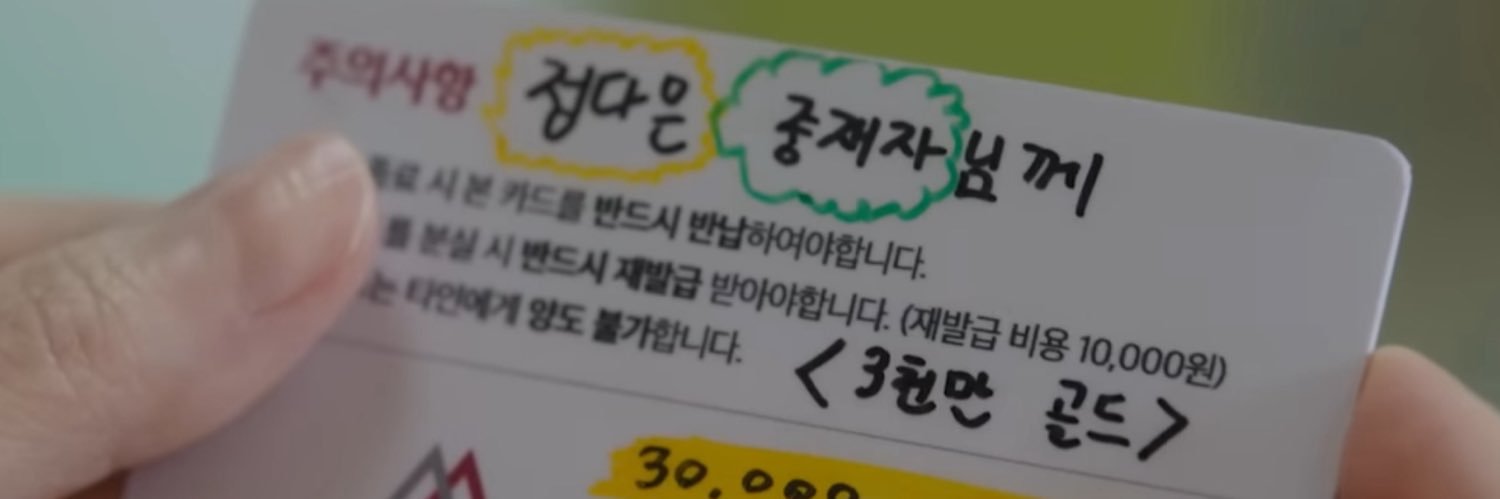 주의사항 정다은 중재자님께
시 본 카드를 반드시 반납하여야합니다.
를 분실 시 반드시 재발급 받아야합니다. (재발급 비용 10,000원)
는 타인에게 양도 불가합니다.
<3천만 골드>
30,000